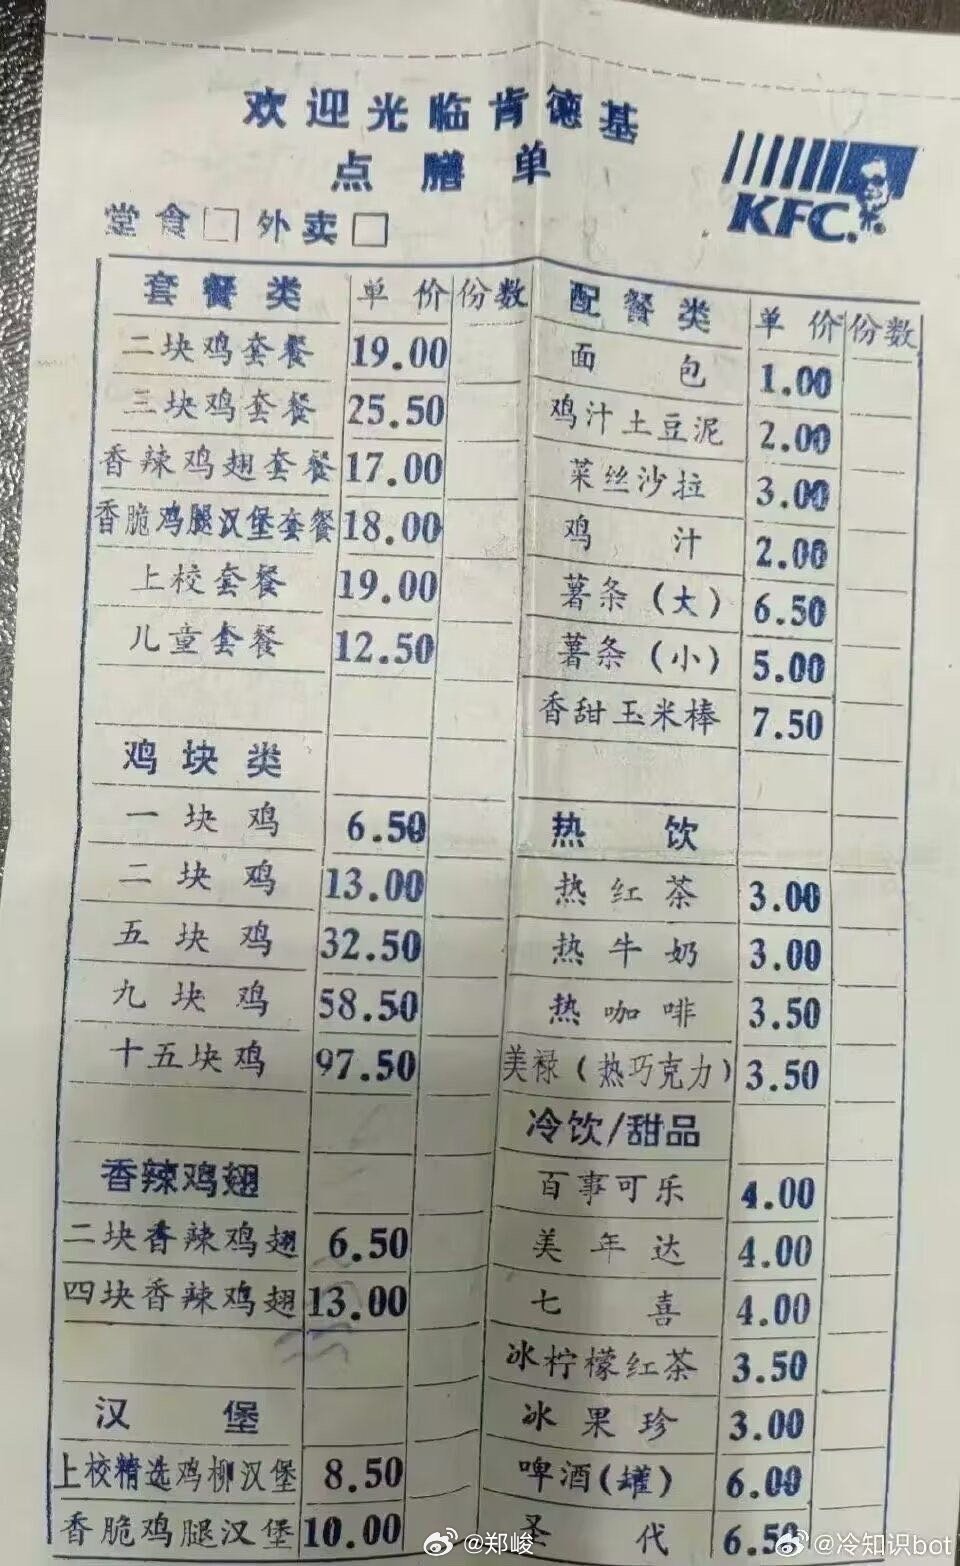 欢迎光临肯德基
点膳单
KFC.
堂食□ 外卖□
套餐类 单价 份数
二块鸡套餐 19.00
三块鸡套餐 25.50
香辣鸡翅套餐 17.00
香脆鸡腿汉堡套餐 18.00
上校套餐 19.00
儿童套餐 12.50
鸡块类
一块鸡 6.50
二块鸡 13.00
五块鸡 32.50
九块鸡 58.50
十五块鸡 97.50
香辣鸡翅
二块香辣鸡翅 6.50
四块香辣鸡翅 13.00
汉堡
上校精选鸡柳汉堡 8.50
香脆鸡腿汉堡 10.00
配餐类 单价 份数
面包 1.00
鸡汁土豆泥 2.00
菜丝沙拉 3.00
鸡汁 2.00
薯条(大) 6.50
薯条(小) 5.00
香甜玉米棒 7.50
热饮
热红茶 3.00
热牛奶 3.00
热咖啡 3.50
美禄(热巧克力) 3.50
冷饮/甜品
百事可乐 4.00
美年达 4.00
七喜 4.00
冰柠檬红茶 3.50
冰果珍 3.00
啤酒(罐) 6.00
圣代 6.50
@郑峻
@冷知识bot